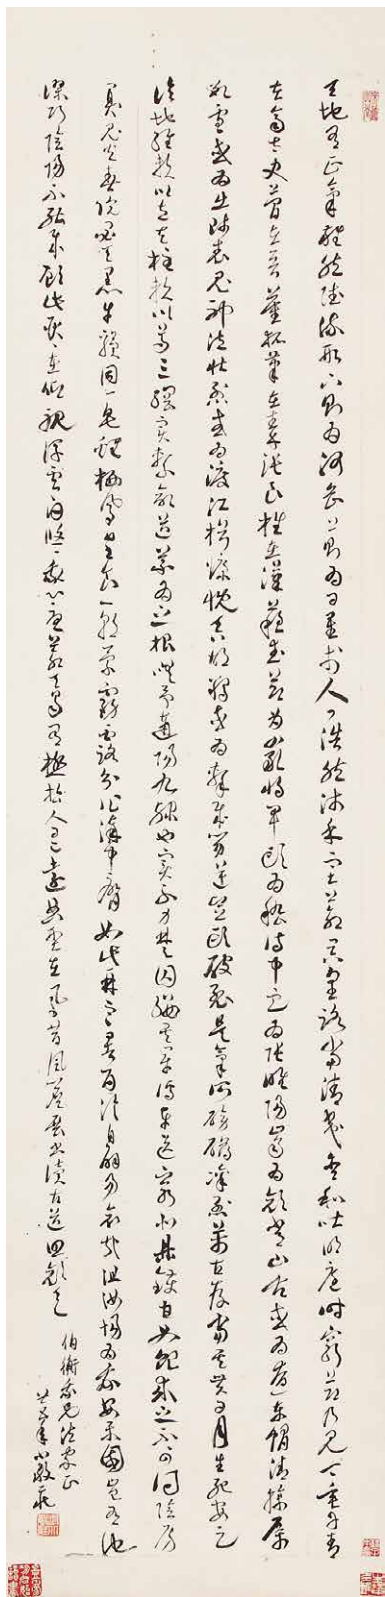 天地有正氣雜然賦流形下則為河嶽上則為日星於人曰浩然沛乎塞蒼冥皇路當清夷含和吐明庭時窮節乃見一一垂丹青
在齊太史簡在晉董狐筆在秦張良椎在漢蘇武節為嚴將軍頭為嵇侍中血為張睢陽齒為顏常山舌或為遼東帽清操厲
冰雪或為出師表鬼神泣壯烈或為渡江楫慷慨吞胡羯或為擊賊笏逆豎頭破裂是氣所磅礴凜烈萬古存當其貫日月生死安足
論地維賴以立天柱賴以尊三綱實繫命道義為之根嗟予遘陽九隸也實不力楚囚纓其冠傳車送窮北鼎鑊甘如飴求之不可得陰房
闃鬼火春院閟天黑牛驥同一皂雞棲鳳凰食一朝蒙霧露分作溝中瘠如此再寒暑百沴自辟易哀哉沮洳場為我安樂國豈有他
繆巧陰陽不能賊顧此耿耿在仰視浮雲白悠悠我心悲蒼天曷有極哲人日已遠典型在夙昔風簷展書讀古道照顏色
伯衡吾兄法家正